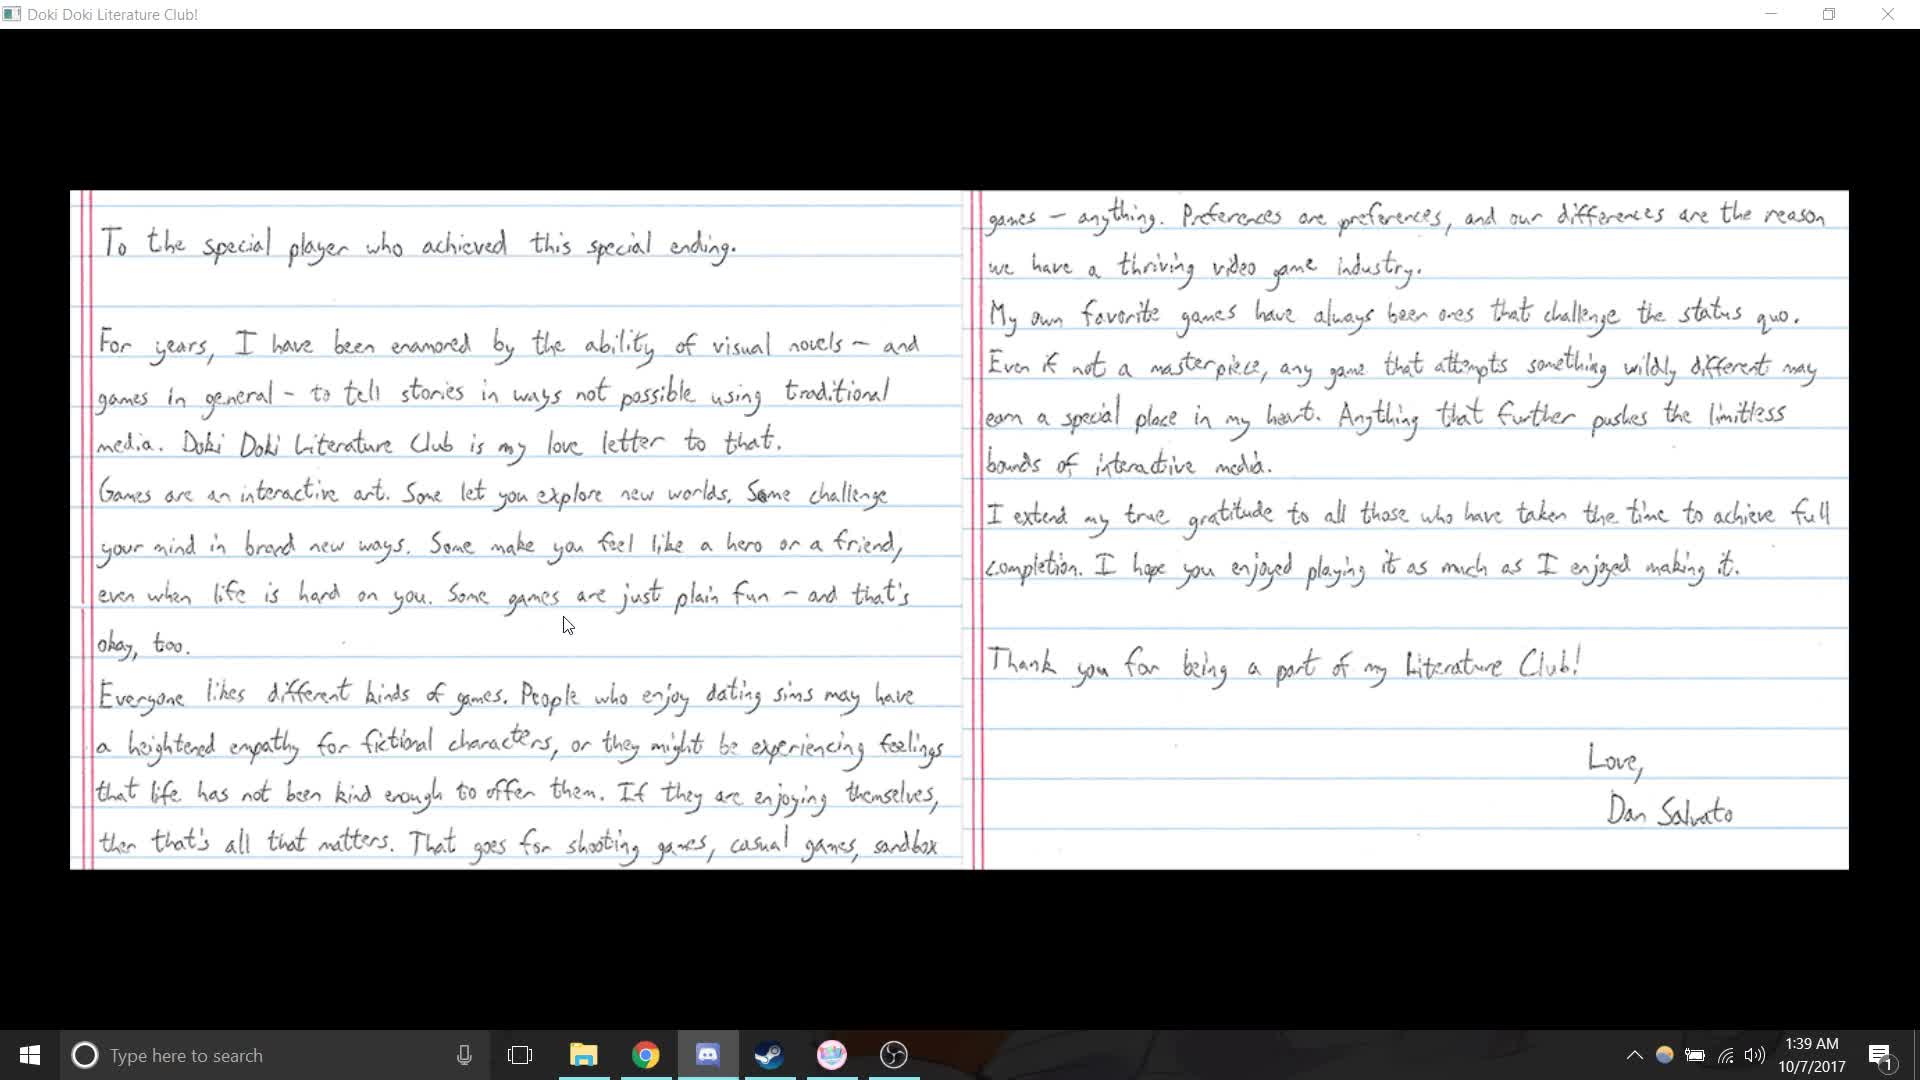 Doki Doki Literature Club!
To the special player who achieved this special ending.
For years, I have been enamored by the ability of visual novels - and
games in general - to tell stories in ways not possible using traditional
media. Doki Doki Literature Club is my love letter to that.
Games are an interactive art. Some let you explore new worlds. Some challenge
your mind in brand new ways. Some make you feel like a hero or a friend,
even when life is hard on you. Some games are just plain fun - and that's
okay, too.
Everyone likes different kinds of games. People who enjoy dating sims may have
a heightened empathy for fictional characters, or they might be experiencing feelings
that life has not been kind enough to offer them. If they are enjoying themselves,
then that's all that matters. That goes for shooting games, casual games, sandbox
games - anything. Preferences are preferences, and our differences are the reason
we have a thriving video game industry.
My own favorite games have always been ones that challenge the status quo.
Even if not a masterpiece, any game that attempts something wildly different may
earn a special place in my heart. Anything that further pushes the limitless
bounds of interactive media.
I extend my true gratitude to all those who have taken the time to achieve full
completion. I hope you enjoyed playing it as much as I enjoyed making it.
Thank you for being a part of my Literature Club!
Love,
Dan Salvato
Type here to search
1:39 AM
10/7/2017
1